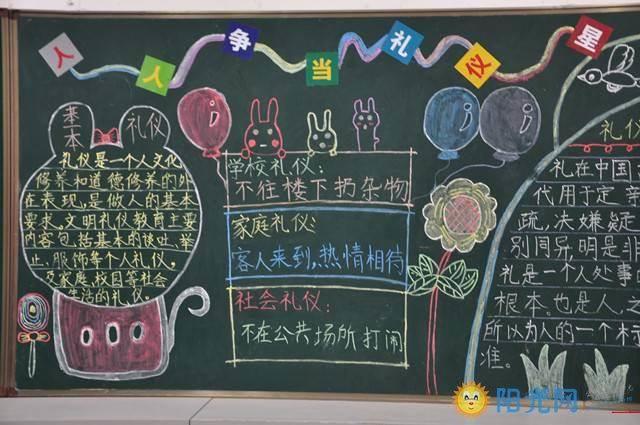 人人争当礼仪星
基本 礼仪
礼仪是一个人文化
修养和道德修养的外
在表现,是做人的基本
要求。文明礼仪教育主要
内容包括基本的谈吐、举
止、服饰等个人礼仪。
及家庭、校园等社会
生活的礼仪。
学校礼仪:
不往楼下扔杂物
家庭礼仪:
客人来到,热情相待
社会礼仪:
不在公共场所打闹
礼仪
礼在中国
代用于定亲
疏,决嫌疑
别同异,明是非
礼是一个人处事
根本.也是人
所以为人的一个标
准。
阳光网